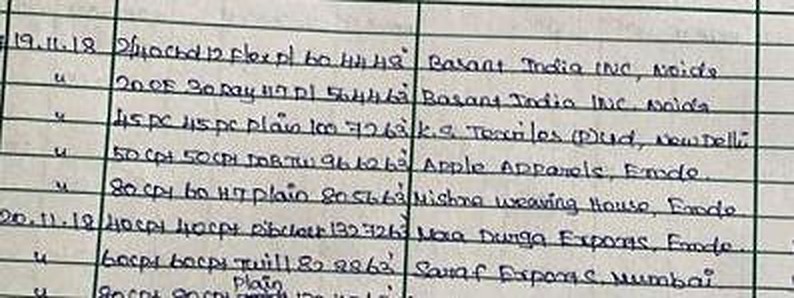 19.11.18 2/40cbd 12 Flex pl 60 44 48" Basant India INC, Noida
" 20 OE 30 Ray 47 pl 56 44 63" Basant India INC, Noida
" 45 pc 45 pc plain 100 72 63" K.S. Textiles (P) Ltd, New Delhi
" 50 cpt 50 cpt 96 62 63" Apple Apparels, Erode
" 80 cpt 60 47 plain 80 56 63" Mishra Weaving House, Erode
20.11.18 40 cpt 40 cpt 132 72 63" Maa Durga Exports, Erode
" 60 cpt 60 cpt Twill 82 88 63" Saraf Exports, Mumbai
plain
" 80 cpt 80 cpt